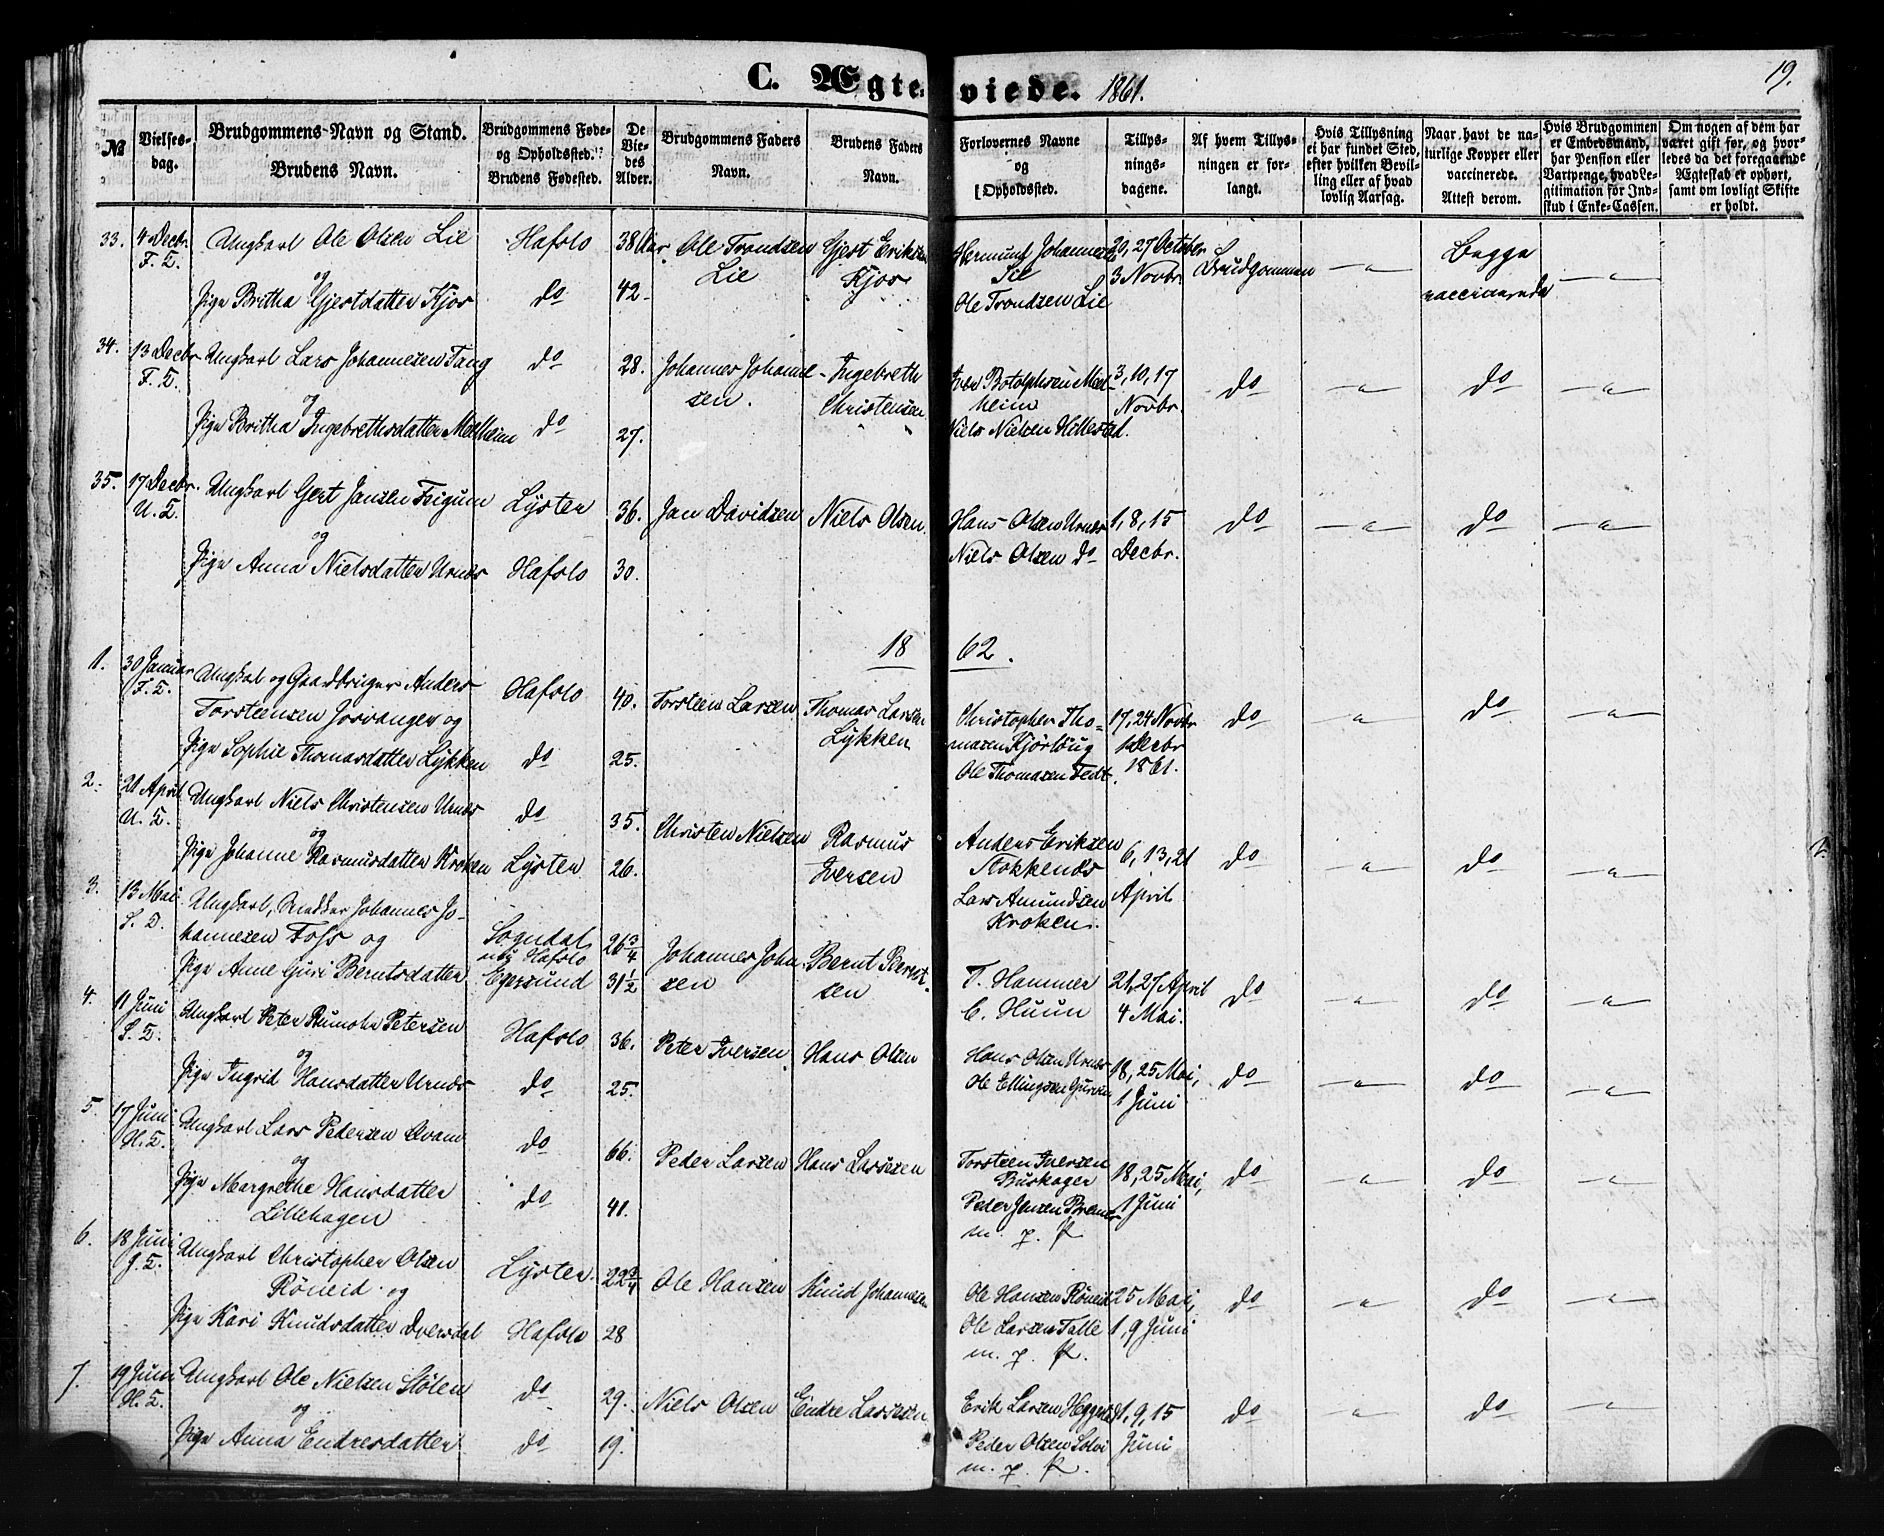 C. Ægteviede. 1861.
19.
№
Vielses-dag.
Brudgommens Navn og Stand.
Brudens Navn.
Brudgommens Føde- og Opholdssted.
Brudens Fødested.
De Viedes Alder.
Brudgommens Faders Navn.
Brudens Faders Navn.
Forlovernes Navne og Opholdssted.
Tillysningsdagene.
Af hvem Tillysningen er forlangt.
Hvis Tillysning ei har fundet Sted, efter hvilken Bevilling eller af hvad lovlig Aarsag.
Naar havt de naturlige Kopper eller vaccinerede. Attest derom.
Hvis Brudgommen er Embedsmand, har Pension eller Vartpenge, hvad Legitimation for Indskud i Enke-Cassen.
Om nogen af dem har været gift før, og hvorledes da det foregaaende Ægteskab er ophørt, samt om lovligt Skifte er holdt.
33. 4 Decbr. Ungkarl Ole Olsen Lie Hafslo 38 Aar Ole Trondsen Lie Gjest Eriksen Kjos Hermund Johannesen 20, 27 October Brudgommen — " — Begge — " —
og 3 Novbr. vaccinerede
Pige Britha Gjestdatter Kjos do 42 Ole Trondsen Lie
34. 13 Decbr. Ungkarl Lars Johannesen Tang do 28. Johannes Johannesen. Ingebreth Christensen Iver Botolphsen Melheim 3, 10, 17 Novbr. do — " — do — " —
og
Pige Britha Ingebrethsdatter Melheim do 27. Niels Nielsen Hillestad.
35. 17 Decbr. Ungkarl Gert Jansen Feigum Lyster 36. Jan Davidsen Niels Olsen. Hans Olsen Urnes 1, 8, 15 do — " — do — " —
og Niels Olsen do Decbr.
Pige Anna Nielsdatter Urnes Hafslo 30.
1862.
1. 30 Januar Ungkal og Gaardbruger Anders Hafslo 40. Torsteen Larsen Thomas Larsen Lykken Christopher Thomasen Kjørlaug 17, 24 Novbr do — " — do — " —
Torsteensen Jorvanger og 1 Decbr
Pige Sophie Thomasdatter Lykken do 25. Ole Thomasen 1861.
2. 21 April Ungkarl Niels Christensen Urnes do 35. Christen Nielsen Rasmus Iversen Anders Eriksen 6, 13, 21 do — " — do — " —
og April
Pige Johanne Rasmusdatter Kroken Lyster 26. Lars Amundsen Kroken.
3. 13 Mai Ungkarl, Snedker Johannes Johannesen Foss og Sogndal Hafslo 26 3/4 Johannes Johnsen Bernt Berntsen T. Hammer 21, 27 April do — " — do — " —
Pige Anne Guri Berntsdatter Egersund 31 1/2 C. Huun 4 Mai.
4. 11 Juni Ungkarl Peter Rumohr Petersen Hafslo 36. Peter Iversen Hans Olsen Hans Olsen Urnes 18, 25 Mai, do — " — do — " —
og Ole Ellingsen 1 Juni
Pige Ingrid Hansdatter Urnes do 25.
5. 17 Juni Ungkarl Lars Pedersen Qvam do 66. Peder Larsen Hans Lassesen Torsteen Iversen 18, 25 Mai, do — " — do — " —
og 1 Juni
Pige Margrethe Hansdatter Lillehagen do 41. Peder Jensen m. p. P.
6. 18 Juni Ungkarl Christopher Olsen Røneid og Lyster 22 3/4 Ole Hansen Knud Johannesen Ole Hansen Røneid 25 Mai, do — " — do — " —
Pige Kari Knudsdatter Dversdal Hafslo 28 Ole Larsen Talle m. p. P. 1, 9 Juni
7. 19 Juni Ungkarl Ole Nielsen Stølen do 29. Niels Olsen Endre Lassesen Erik Larsen 1, 9, 15 do — " — do — " —
og Juni
Pige Anna Endresdatter do 19. Peder Olsen m. p. P.